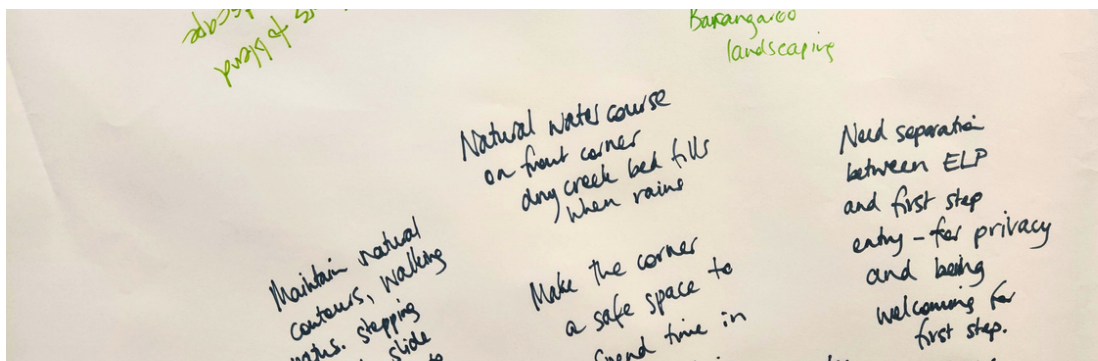 to blend
Barangaroo
landscaping
Natural water course
on front corner
dry creek bed fills
when rains
Need separation
between ELP
and first step
entry - for privacy
and being
welcoming for
first step.
Maintain natural
contours, walking
stepping
slide
to
Make the corner
a safe space to
spend time in